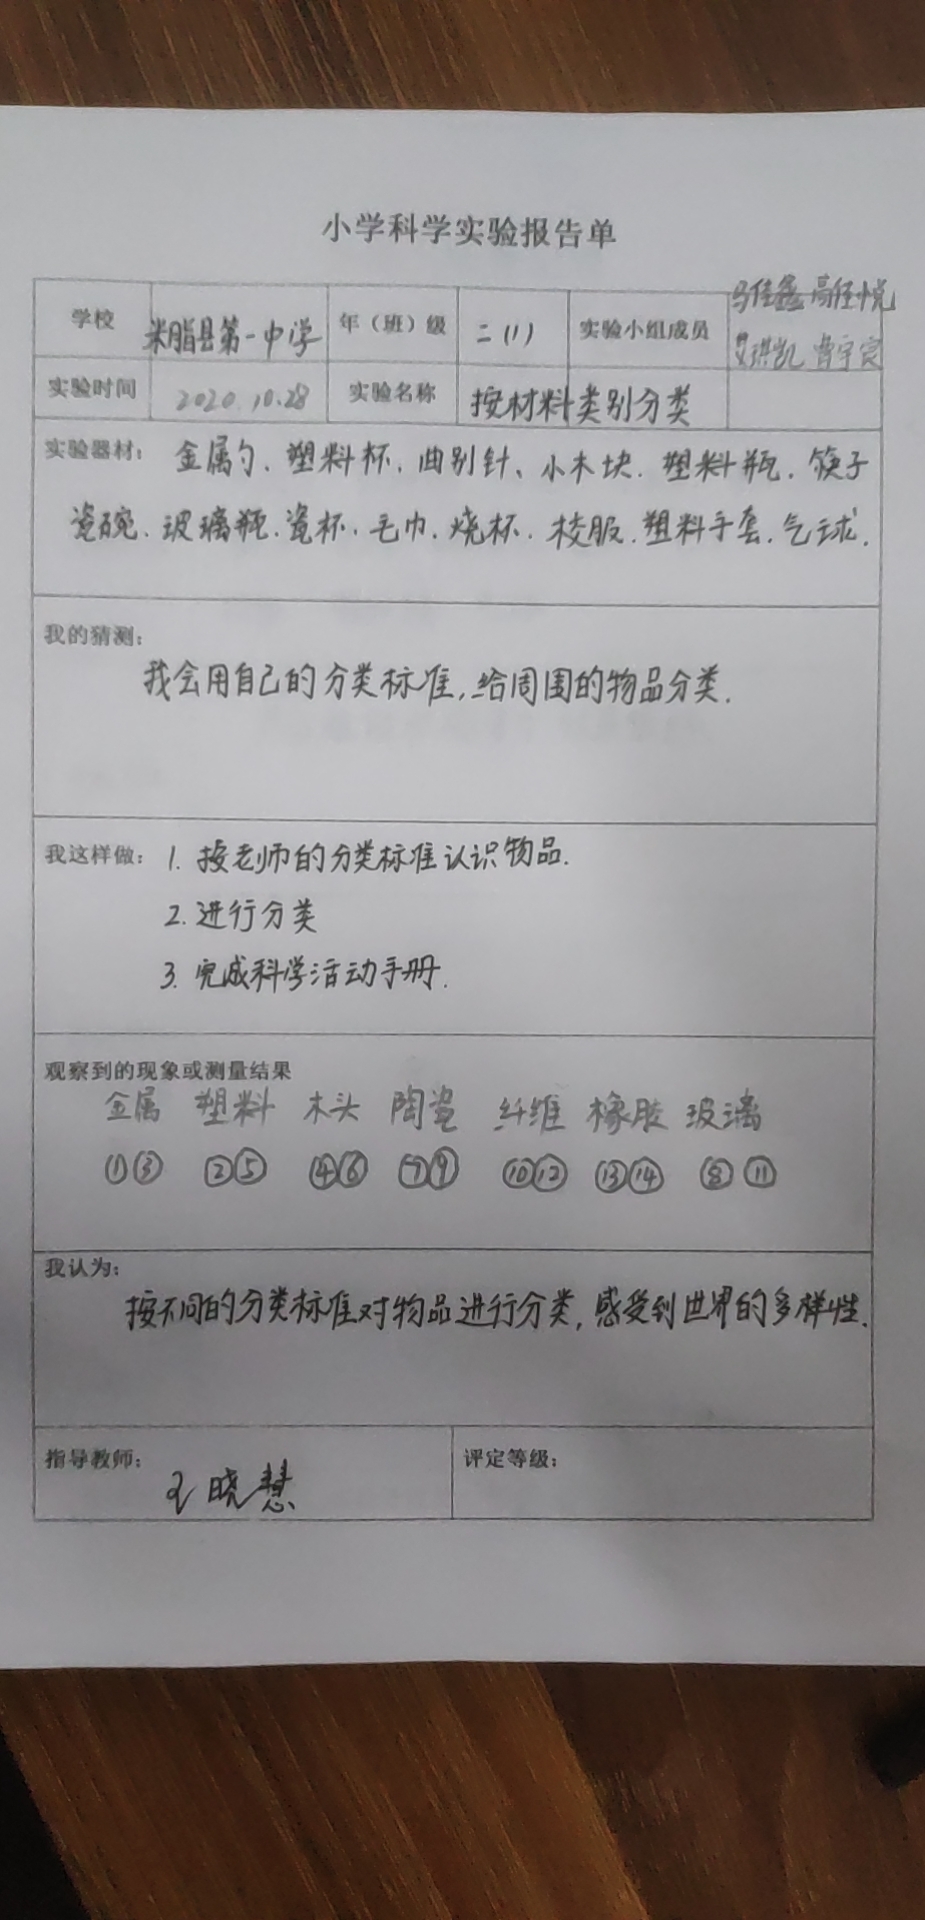 小学科学实验报告单
学校 米脂县第一中学 年（班）级 二（1） 实验小组成员 马佳鑫 高任悦
琪凯 曹宇
实验时间 2020.10.28 实验名称 按材料类别分类
实验器材：金属勺、塑料杯、曲别针、小木块、塑料瓶、筷子
瓷碗、玻璃瓶、瓷杯、毛巾、烧杯、校服、塑料手套、气球.
我的猜测：
我会用自己的分类标准,给周围的物品分类.
我这样做：1. 按老师的分类标准认识物品.
2. 进行分类
3. 完成科学活动手册.
观察到的现象或测量结果
金属 塑料 木头 陶瓷 纤维 橡胶 玻璃
①③ ②⑤ ④⑥ ⑦⑨ ⑩⑫ ⑬⑭ ⑧⑪
我认为：
按不同的分类标准对物品进行分类,感受到世界的多样性.
指导教师： 王晓慧 评定等级：